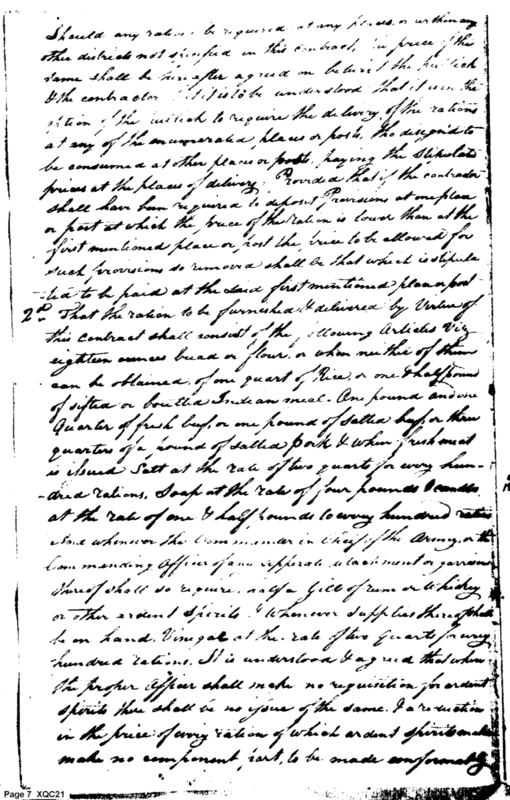 Should any rations be required at any places, or within any
other districts not specified in this contract, the price of the
same shall be hereafter agreed on betwixt the publick
& the contractor it is to be understood that it is in the
option of the publick to require the delivery of the rations
at any of the enumerated places or posts, tho designed to
be consumed at other places or posts, paying the stipulated
prices at the places of delivery. Provided that if the contractor
shall have been required to deposit Provisions at one place
or post at which the price of the ration is lower than at the
first mentioned place or post the price to be allowed for
such provisions so removed shall be that which is stipula
-ted to be paid at the said first mentioned place or post
2d. That the ration to be furnished & delivered by Virtue of
this contract shall consist of the following Articles Viz
eighteen ounces bread or flour, or when neither of them
can be obtained, of one quart of Rice, or one & half pound
of sifted or boulted Indean meal. One pound and one
Quarter of fresh beef, or one pound of salted beef, or three
quarters of a pound of salted pork & when fresh meat
is issued Salt at the rate of two quarts for every hun-
-dred rations, Soap at the rate of four pounds & candles
at the rate of one & half pounds to every hundred rations
And whenever the Commander in Chief of the Army, or the
Commanding Officer of any seperate detachment or garrison
thereof shall so require, half a Gill of rum or Whiskey
or other ardent spirits. & Whenever supplies thereof shall
be on hand, Vinegar at the rate of two Quarts for every
hundred rations. It is understood & agreed that when
the proper Officer shall make no requisition for ardent
spirits there shall be no issue of the same. & a reduction
in the price of every ration of which ardent spirits make
make no component part, to be made conformably
Page 7 XQC21